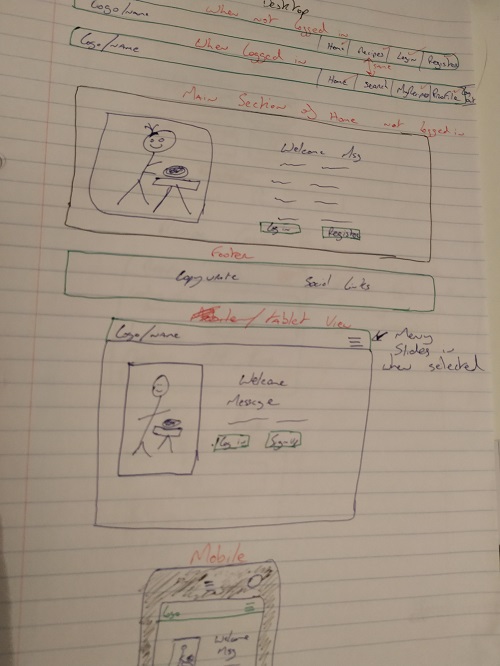 Desktop
Logo/name When not logged in
Home Recipes Login Register
Logo/name When logged in
same
Home Search My Recipes Profile Log out
Main Section of Home not logged in
Welcome Msg
Log in Register
Footer
Copywrite Social Links
/tablet View
Logo/name
Menu
Slides in
when selected
Welcome
Message
Log in Sign up
Mobile
Logo
Welcome
Msg